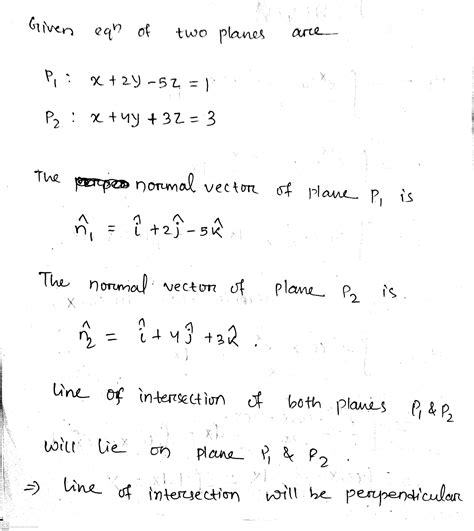 Given eqⁿ of two planes are
P₁ : x + 2y - 5z = 1
P₂ : x + 4y + 3z = 3
The normal vector of plane P₁ is
n̂₁ = î + 2ĵ - 5k̂
The normal vector of plane P₂ is.
n̂₂ = î + 4ĵ + 3k̂ .
line of intersection of both planes P₁ & P₂
will lie on plane P₁ & P₂ .
⇒ line of intersection will be perpendicular